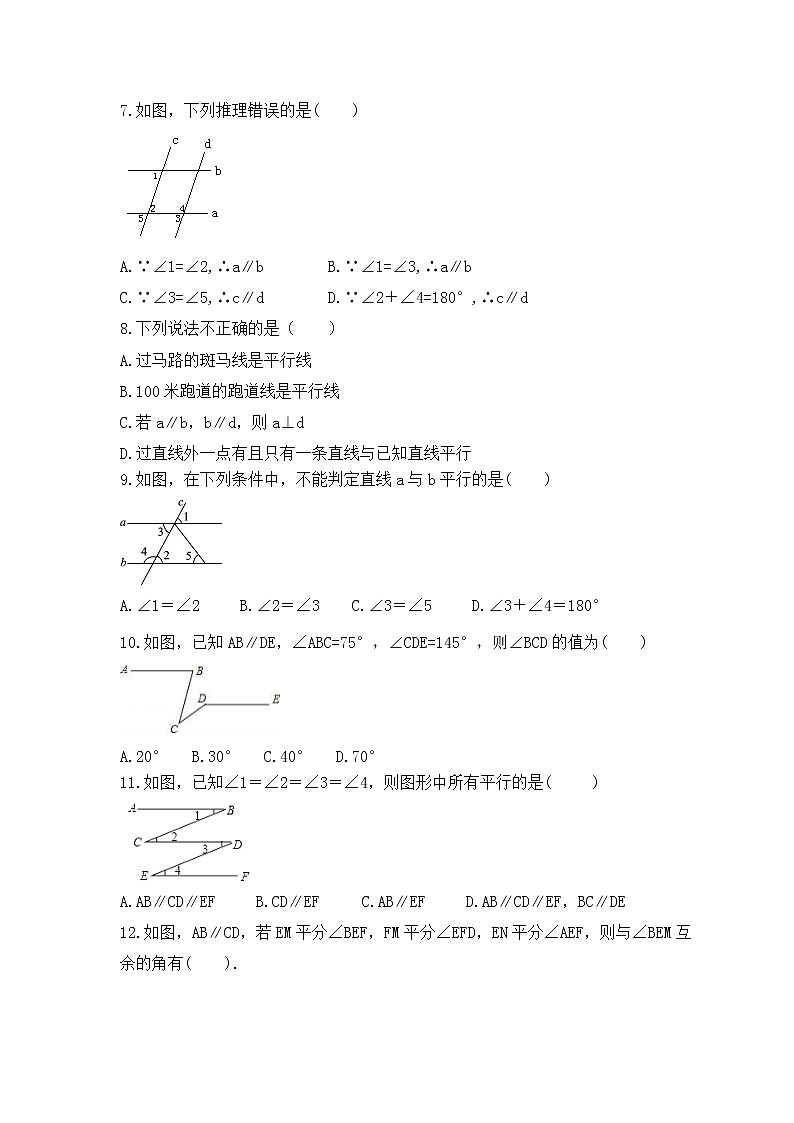 7.如图，下列推理错误的是(　　)
c
d
b
1
2
4
5
3
a
A.∵∠1=∠2,∴a∥b　　B.∵∠1=∠3,∴a∥b
C.∵∠3=∠5,∴c∥d　　D.∵∠2＋∠4=180°,∴c∥d
8.下列说法不正确的是（　　）
A.过马路的斑马线是平行线
B.100米跑道的跑道线是平行线
C.若a∥b，b∥d，则a⊥d
D.过直线外一点有且只有一条直线与已知直线平行
9.如图，在下列条件中，不能判定直线a与b平行的是(　　)
c
a
1
3
4
2
5
b
A.∠1＝∠2　　B.∠2＝∠3　　C.∠3＝∠5　　D.∠3＋∠4＝180°
10.如图，已知AB∥DE，∠ABC=75°，∠CDE=145°，则∠BCD的值为(　　)
A
B
D
E
C
A.20°　B.30°　C.40°　D.70°
11.如图，已知∠1＝∠2＝∠3＝∠4，则图形中所有平行的是(　　)
A
1
B
C
2
3
D
E
4
F
A.AB∥CD∥EF　　B.CD∥EF　　C.AB∥EF　　D.AB∥CD∥EF，BC∥DE
12.如图，AB∥CD，若EM平分∠BEF，FM平分∠EFD，EN平分∠AEF，则与∠BEM互
余的角有(　　).